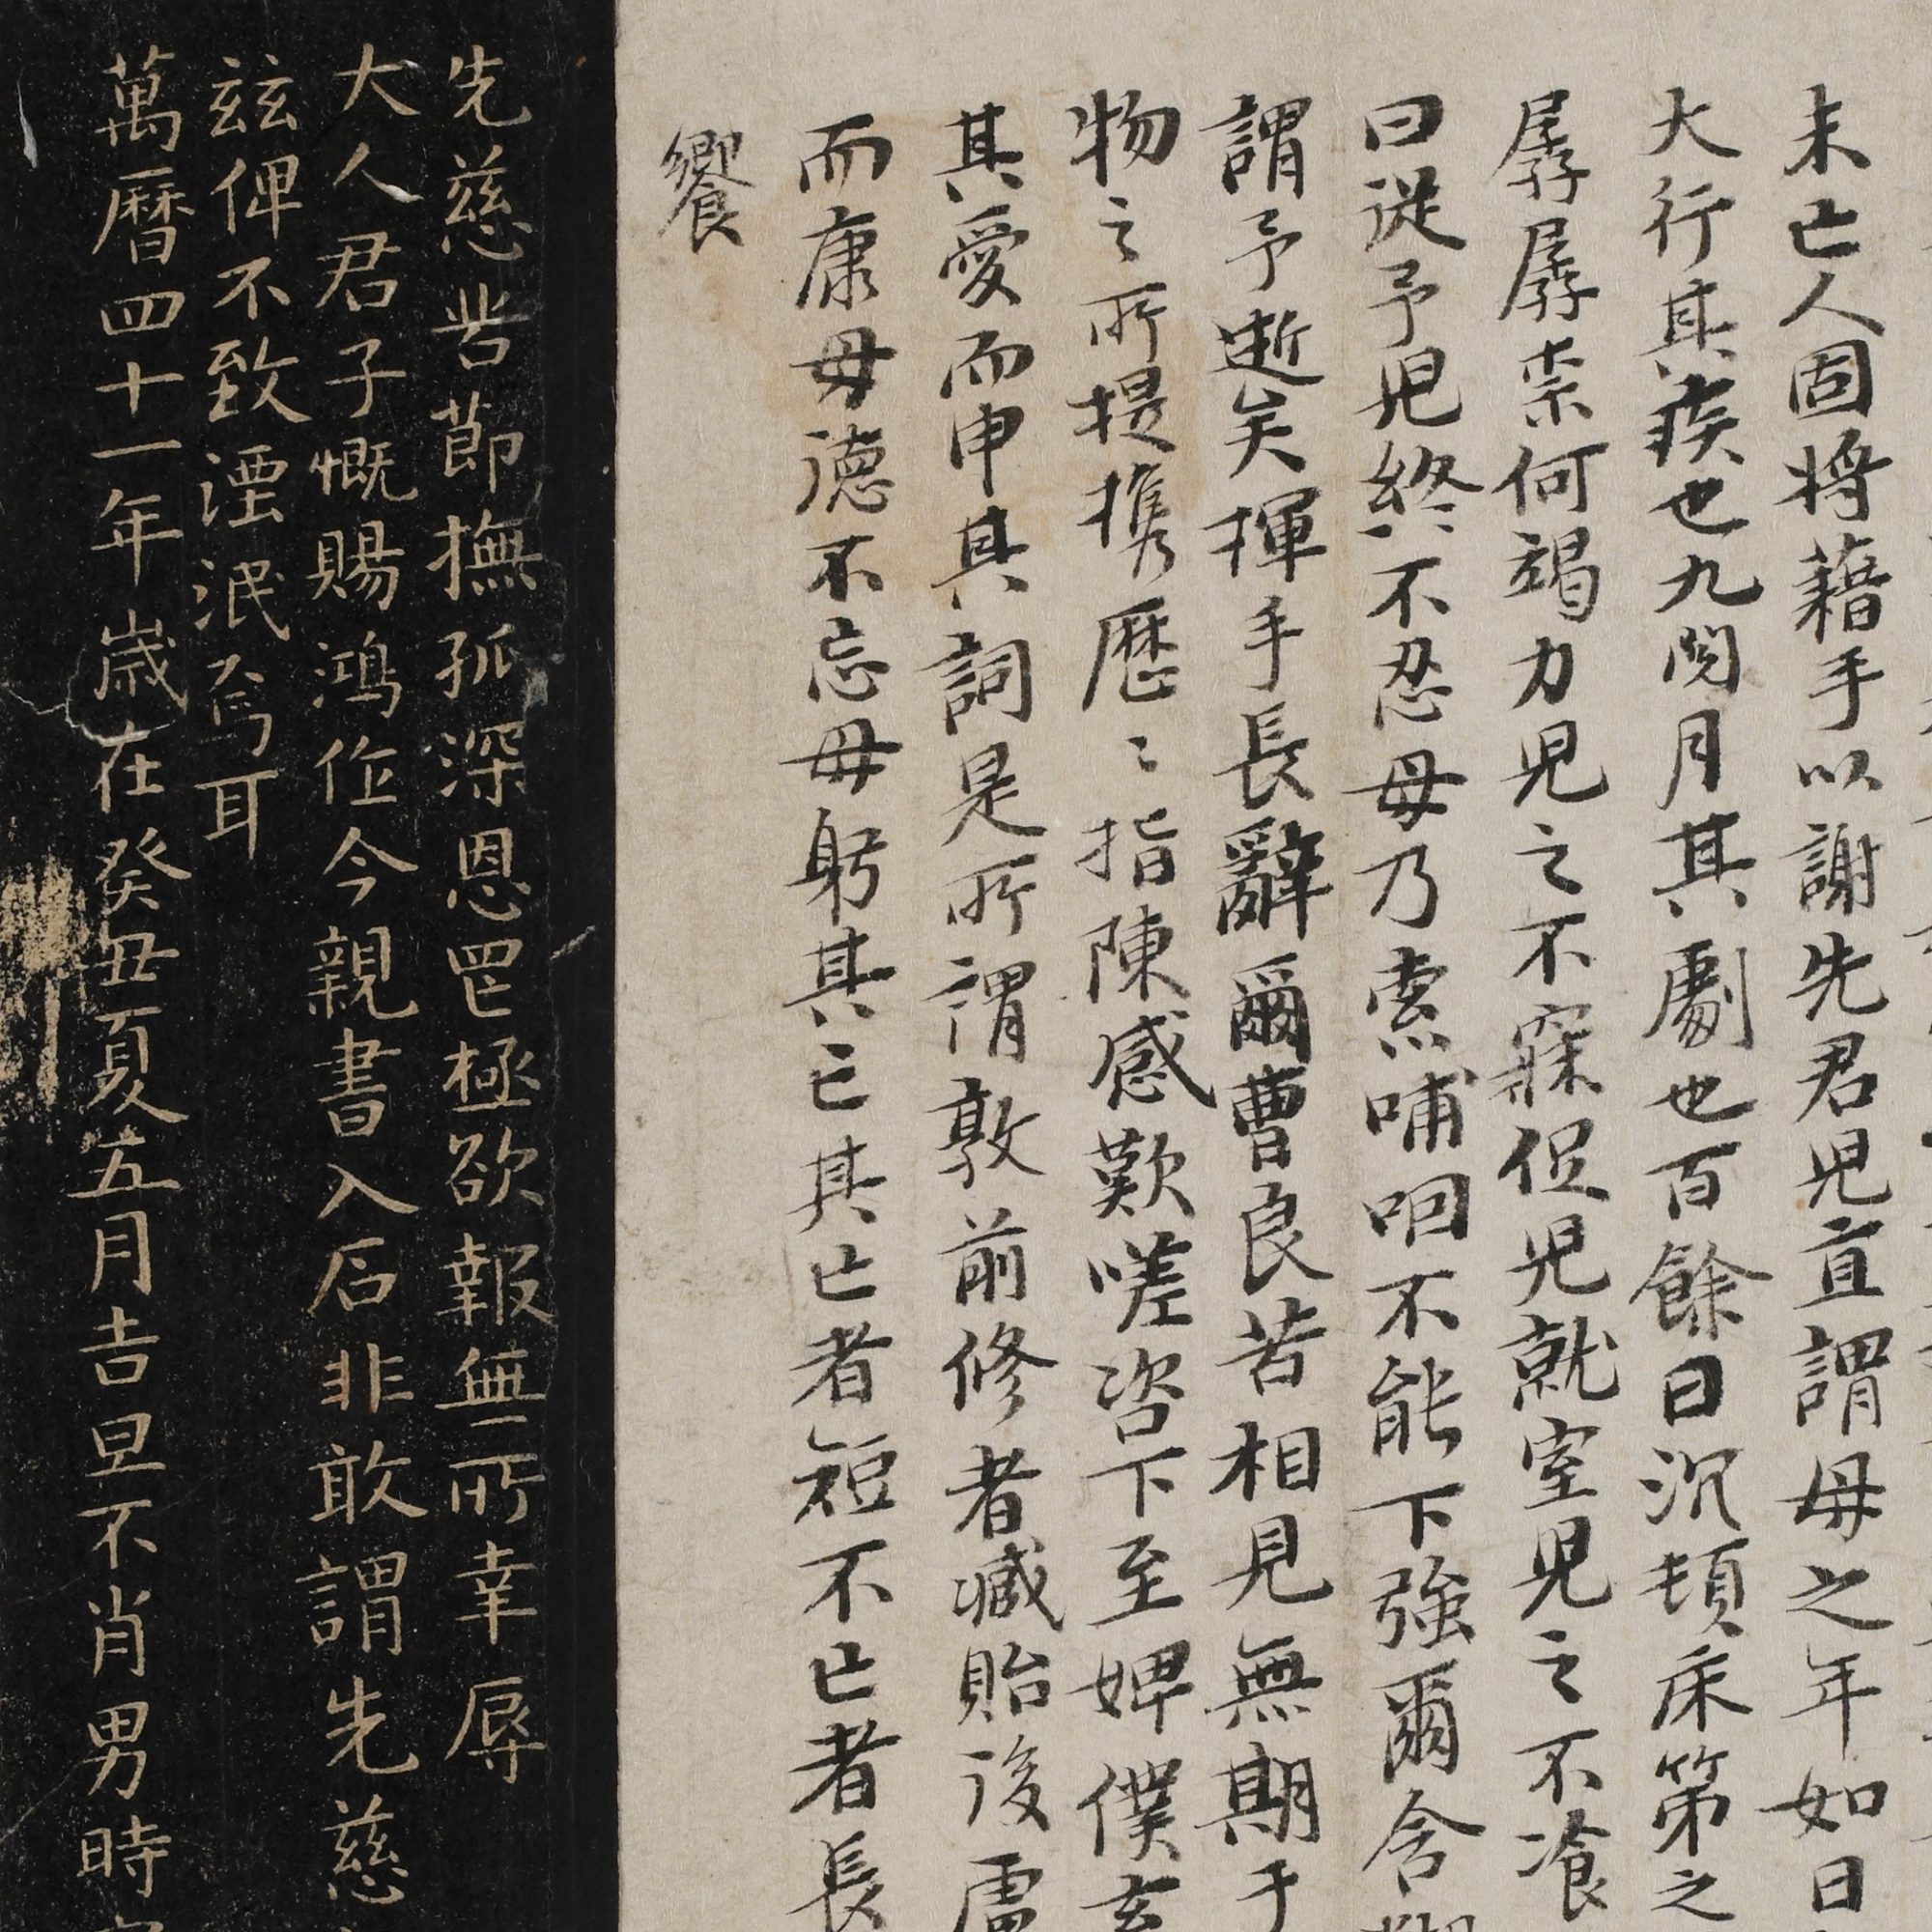 未亡人固將藉手以謝先君兒直謂母之年如日
大行其疾也九閱月其劇也百餘日沉頓床第之
孱孱柰何竭力兒之不寐促兒就室兒之不飡
曰從予兒終不忍母乃索哺咽不能下強爾含
謂予逝矣揮手長辭爾曹良苦相見無期于
物之所提攜歷〻指陳感歎嗟咨下至婢僕玄
其愛而申其詞是所謂敦前修者臧貽後盧
而康母德不忘母躬其亡其亡者短不亡者長
饗
先慈昔節撫孤深恩罔極欲報無所幸辱
大人君子慨賜鴻作今親書入石非敢謂先慈
茲俾不致湮泯焉耳
萬曆四十一年歲在癸丑夏五月吉旦不肖男時